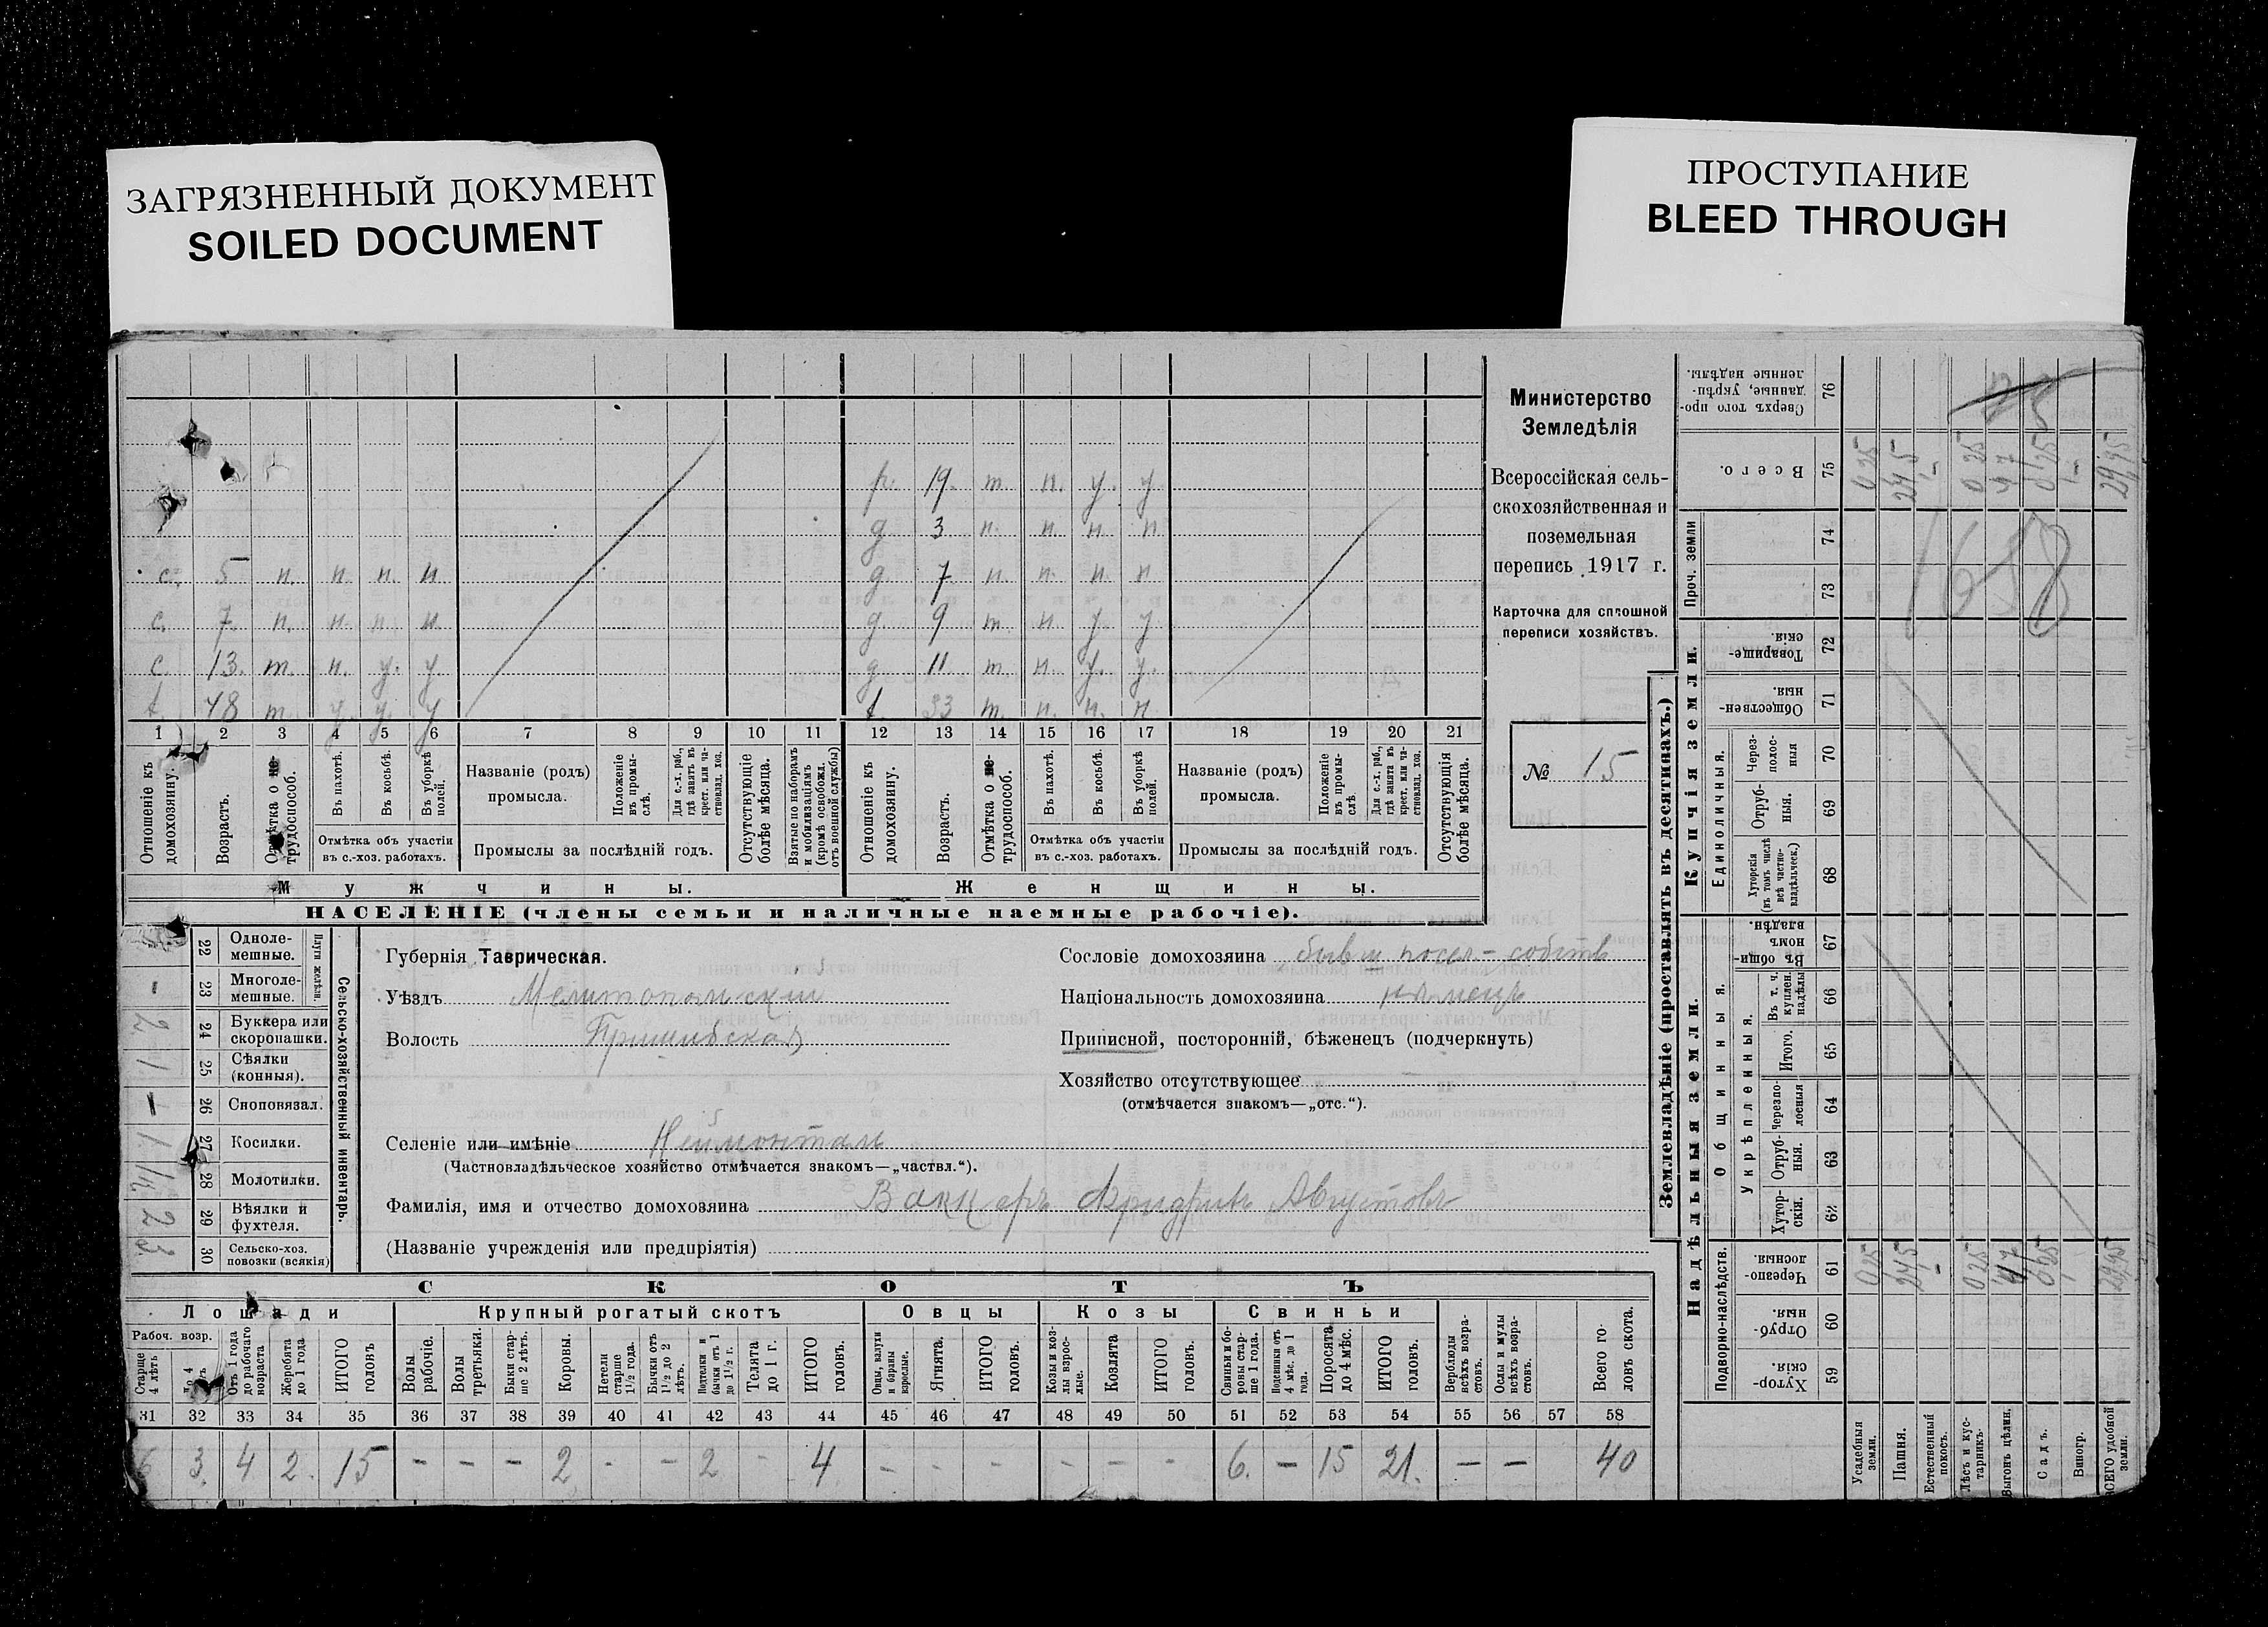 ЗАГРЯЗНЕННЫЙ ДОКУМЕНТ
SOILED DOCUMENT
ПРОСТУПАНИЕ
BLEED THROUGH
р. 19. т. н. у. у.
д. 3 н. н. н. н.
с. 5 н. н. н. н. д. 7 н. н. н. н.
с. 7. н. н. н. н. д. 9 т. н. у. у.
с. 13. т. н. у. у. д. 11 т. н. у. у.
48 т. у. у. у. 33 т. н. н. н.
1 2 3 4 5 6 7 8 9 10 11 12 13 14 15 16 17 18 19 20 21
Отношеніе къ домохозяину.
Возрастъ.
Отмѣтка о не-трудоспособ.
Въ пахотѣ.
Въ косьбѣ.
Въ уборкѣ полей.
Отмѣтка объ участіи
въ с.-хоз. работахъ.
Названіе (родъ)
промысла.
Положеніе въ промы-слѣ.
Для с.-х. раб., гдѣ занятъ въ крест. или ча-стновлад. хоз.
Промыслы за послѣдній годъ.
Отсутствующіе болѣе мѣсяца.
Взятые по наборамъ и мобилизаціямъ (кромѣ освобожд. отъ военной службы)
Отношеніе къ домохозяину.
Возрастъ.
Отмѣтка о не-трудоспособ.
Въ пахотѣ.
Въ косьбѣ.
Въ уборкѣ полей.
Отмѣтка объ участіи
въ с.-хоз. работахъ.
Названіе (родъ)
промысла.
Положеніе въ промы-слѣ.
Для с.-х. раб., гдѣ занята въ крест. или ча-стновлад. хоз.
Промыслы за послѣдній годъ.
Отсутствующія болѣе мѣсяца.
Мужчины.
Женщины.
НАСЕЛЕНІЕ (члены семьи и наличные наемные рабочіе).
Министерство
Земледѣлія
Всероссійская сель-
скохозяйственная и
поземельная
перепись 1917 г.
Карточка для сплошной
переписи хозяйствъ.
№ 15
22 Одноле-мешные.
Плуги желѣзн.
- 23 Многоле-мешные.
2 24 Буккера или скоропашки.
1 25 Сѣялки (конныя).
- 26 Сноповязал.
1 27 Косилки.
28 Молотилки.
2 29 Вѣялки и фухтеля.
3 30 Сельско-хоз. повозки (всякія)
Сельско-хозяйственный инвентарь.
Губернія Таврическая.
Уѣздъ Мелитопольскій
Волость Пришибская
Селеніе или имѣніе Неймонталь
(Частновладѣльческое хозяйство отмѣчается знакомъ—„частвл.“).
Фамилія, имя и отчество домохозяина Ваккеръ Фридрихъ Августовъ
(Названіе учрежденія или предпріятія)
Сословіе домохозяина бывш посел-собств
Національность домохозяина нѣмецъ
Приписной, посторонній, бѣженецъ (подчеркнуть)
Хозяйство отсутствующее
(отмѣчается знакомъ—„отс.“).
СКОТЪ
Лошади Крупный рогатый скотъ Овцы Козы Свиньи
Рабоч. возр.
Старше 4 лѣтъ
Отъ 1 года до рабочаго возраста
Жеребята до 1 года
ИТОГО головъ
Волы рабочіе.
Волы третьяки.
Быки стар-ше 2 лѣтъ.
Коровы.
Нетели старше 1½ года.
Бычки отъ 1½ до 2 лѣтъ.
Подтелки и бычки отъ 1 до 1½ г.
Телята до 1 г.
ИТОГО головъ.
Овцы, валухи и бараны взрослые.
Ягнята.
ИТОГО головъ.
Козы и коз-лы взрос-лые.
Козлята
ИТОГО головъ.
Свиньи и бо-ровы стар-ше 1 года.
Подсвинки отъ 4 мѣс. до 1 года.
Поросята до 4 мѣс.
ИТОГО головъ.
Верблюды всѣхъ возра-стовъ.
Ослы и мулы всѣхъ возра-стовъ.
Всего го-ловъ скота.
31 32 33 34 35 36 37 38 39 40 41 42 43 44 45 46 47 48 49 50 51 52 53 54 55 56 57 58
6 3. 4 2. 15 - - - 2 - - 2 - 4 - - - - - - 6. - 15 21. - - 40
Землевладѣніе (проставлять въ десятинахъ.)
Надѣльныя земли.
Купчія земли.
Проч. земли
Подворно-наслѣдств.
Общинныя.
Укрѣпленныя.
Единоличныя.
Сверхъ того про-данные, укрѣп-ленные надѣлы. 76
Всего. 75
74
73
Товарище-скія. 72
Обществен-ныя. 71
Через-полос-ныя 70
Отруб-ныя. 69
Хуторскія (въ томъ числѣ всѣ частно-владѣльческ.) 68
Въ общин-номъ владѣн. 67
Въ т. ч. куплен. надѣлы 66
Итого. 65
черезпо-лосныя 64
Отруб-ныя. 63
Хутор-скія. 62
Черезпо-лосныя. 61
Отруб-ныя. 60
Хутор-скія. 59
0,25 24,5 - 0,25 4,7 0,25 - 29,95
1658
0,25 24,5 - 0,25 4,7 0,25 29,95
Усадебныя земли.
Пашня.
Естественный покосъ.
Лѣсъ и кус-тарникъ.
Выгонъ цѣлин.
Садъ.
Виногр.
ВСЕГО удобной земли.